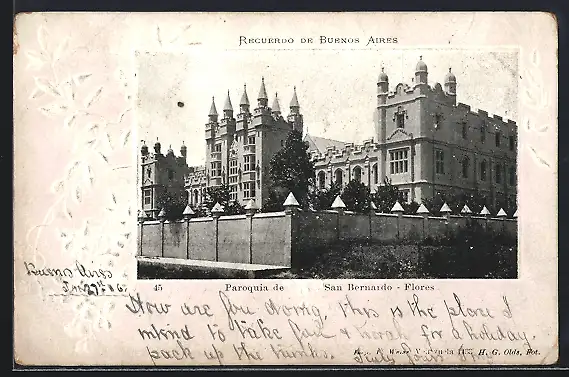 RECUERDO DE BUENOS AIRES
45 Paroquia de San Bernardo - Flores
Buenos Aires
Jan 27th 06.
How are you doing, this is the place I
mind to take you & for a holiday,
pack up the trunks.
H. G. Olds, Fot.